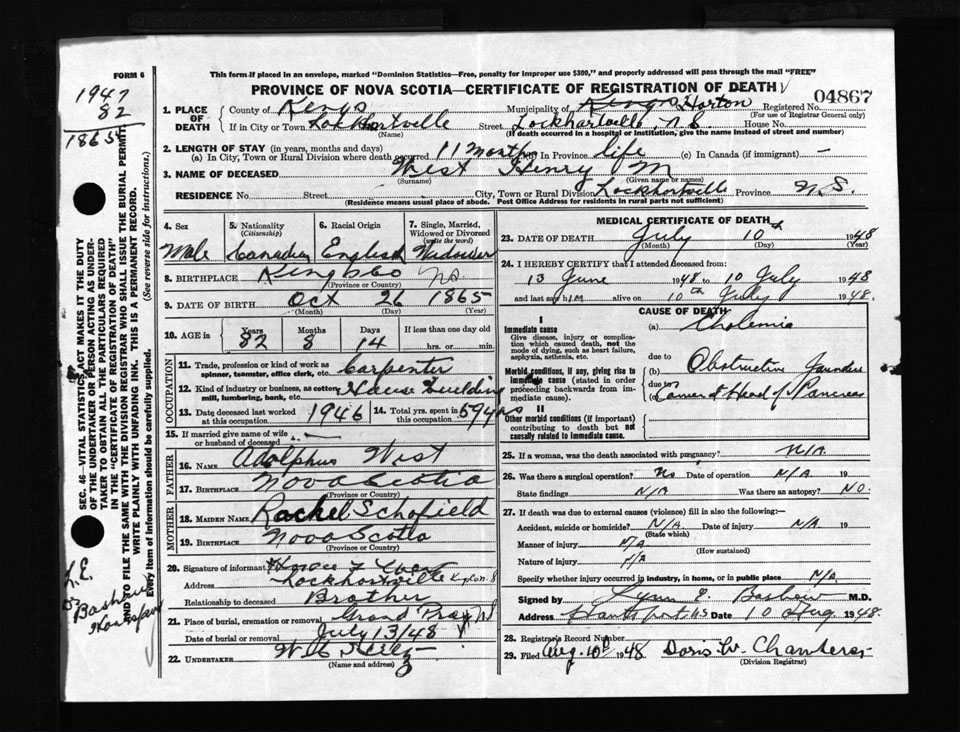 FORM 6
This form if placed in an envelope, marked "Dominion Statistics—Free, penalty for improper use $300," and properly addressed will pass through the mail "FREE"
PROVINCE OF NOVA SCOTIA—CERTIFICATE OF REGISTRATION OF DEATH
1947
82
1865
04867
1. PLACE OF DEATH County of Kings Municipality of Kings Horton Registered No.
(For use of Registrar General only)
If in City or Town Lockhartville Street Lockhartville, N.S. House No.
(Name) (If death occurred in a hospital or institution, give the name instead of street and number)
2. LENGTH OF STAY (in years, months and days)
(a) In City, Town or Rural Division where death occurred 11 months (b) In Province life (c) In Canada (if immigrant) —
3. NAME OF DECEASED West Henry M
(Surname) (Given name or names)
RESIDENCE No. Street City, Town or Rural Division Lockhartville Province N.S.
(Residence means usual place of abode. Post Office Address for residents in rural parts not sufficient)
4. Sex 5. Nationality (Citizenship) 6. Racial Origin 7. Single, Married, Widowed or Divorced (write the word)
Male Canadian English Widower
8. BIRTHPLACE Kings Co N.S.
(Province or Country)
9. DATE OF BIRTH Oct 26 1865
(Month) (Day) (Year)
10. AGE in Years Months Days If less than one day old
82 8 14 hrs. or min.
OCCUPATION
11. Trade, profession or kind of work as spinner, teamster, office clerk, etc. Carpenter
12. Kind of industry or business, as cotton mill, lumbering, bank, etc. House building
13. Date deceased last worked at this occupation 1946 14. Total yrs. spent in this occupation 59 yrs
15. If married give name of wife or husband of deceased —
FATHER
16. NAME Adolphus West
17. BIRTHPLACE Nova Scotia
(Province or Country)
MOTHER
18. MAIDEN NAME Rachel Schofield
19. BIRTHPLACE Nova Scotia
(Province or Country)
20. Signature of informant
Address Lockhartville
Relationship to deceased Brother
21. Place of burial, cremation Grand Pre N.S
Date of burial or removal July 13/48
22. UNDERTAKER
(Name and address)
MEDICAL CERTIFICATE OF DEATH
23. DATE OF DEATH July 10th 1948
(Month) (Day) (Year)
24. I HEREBY CERTIFY that I attended deceased from:
13 June 1948 to 10 July 1948
and last saw him alive on 10th July 1948.
CAUSE OF DEATH
I
Immediate cause
Give disease, injury or complication which caused death, not the mode of dying, such as heart failure, asphyxia, asthenia, etc.
(a) Cholemia
due to
Morbid conditions, if any, giving rise to immediate cause (stated in order proceeding backwards from immediate cause).
(b) Obstructive Jaundice
due to
(c) Cancer of Head of Pancreas
II
Other morbid conditions (if important) contributing to death but not causally related to immediate cause.
25. If a woman, was the death associated with pregnancy? N/A.
26. Was there a surgical operation? No Date of operation N/A 19
State findings N/A Was there an autopsy? NO.
27. If death was due to external causes (violence) fill in also the following:—
Accident, suicide or homicide? N/A. Date of injury N/A. 19
(State which)
Manner of injury N/A
(How sustained)
Nature of injury N/A
Specify whether injury occurred in industry, in home, or in public place N/A.
Signed by M.D.
Address Hantsport N.S Date 10 Aug 1948.
28. Registrar's Record Number
29. Filed Aug. 10th 1948 Doris W. Chambers
(Division Registrar)
SEC. 46—VITAL STATISTICS ACT MAKES IT THE DUTY OF THE UNDERTAKER OR PERSON ACTING AS UNDERTAKER TO OBTAIN ALL THE PARTICULARS REQUIRED IN THE "CERTIFICATE OF REGISTRATION OF DEATH" AND TO FILE THE SAME WITH THE DIVISION REGISTRAR WHO SHALL ISSUE THE BURIAL PERMIT.
WRITE PLAINLY WITH UNFADING INK. THIS IS A PERMANENT RECORD.
Every item of information should be carefully supplied. (See reverse side for instructions.)